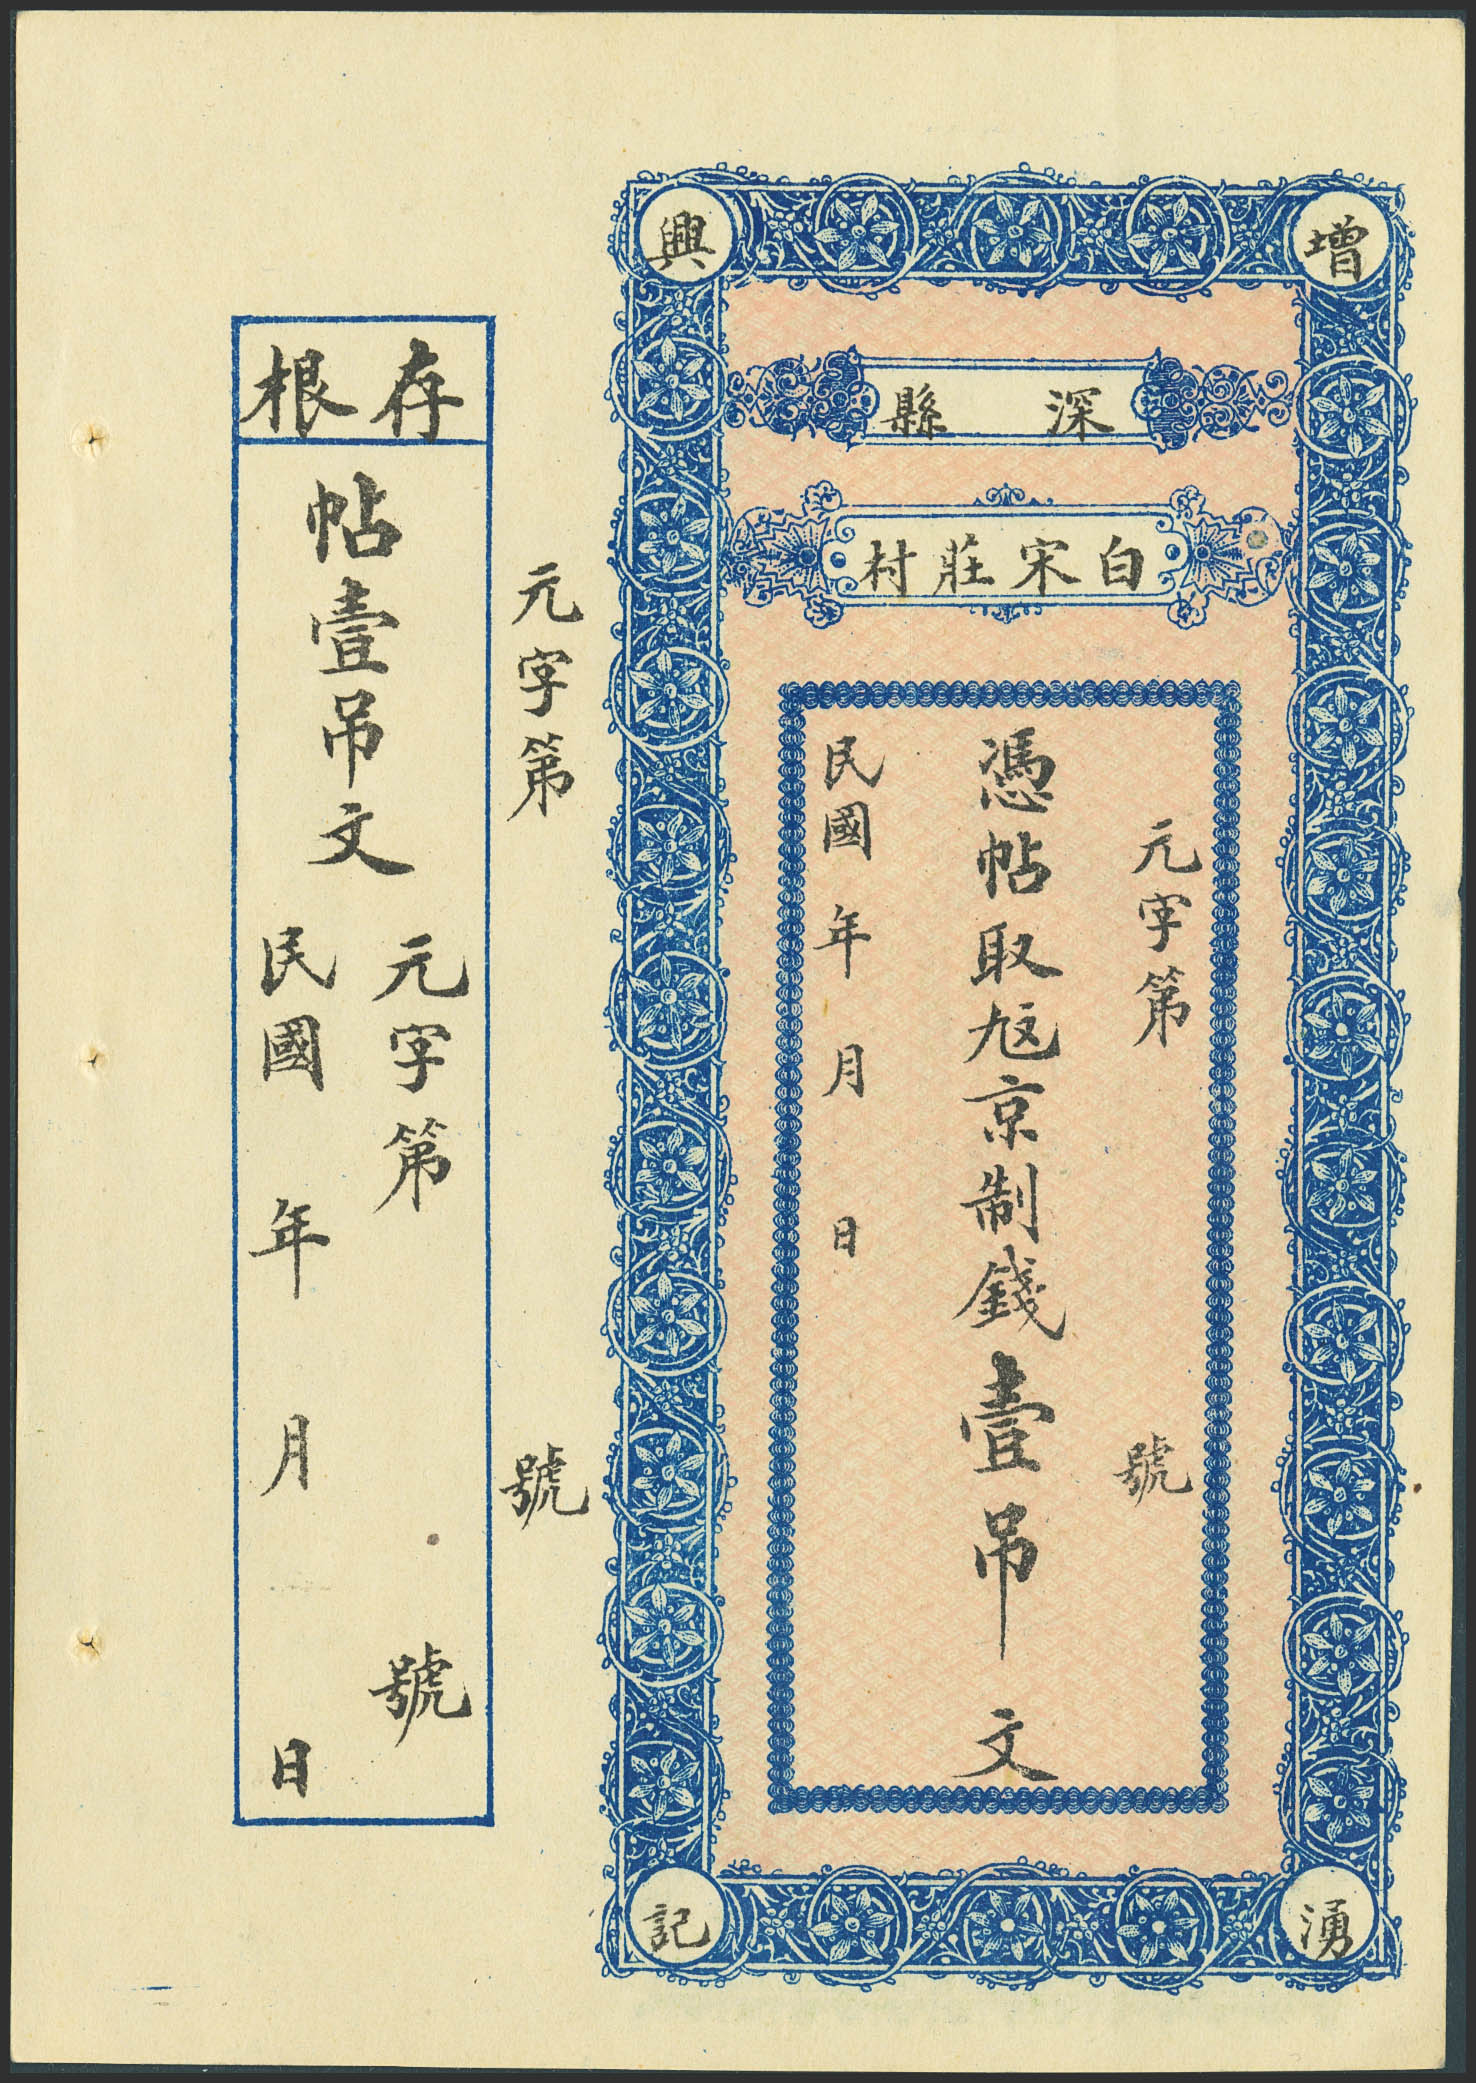 增
興
深縣
白宋莊村
元字第 號
憑帖取九五京制錢壹吊文
民國 年 月 日
湧
記
元字第 號
存根
帖壹吊文
元字第 號
民國 年 月 日